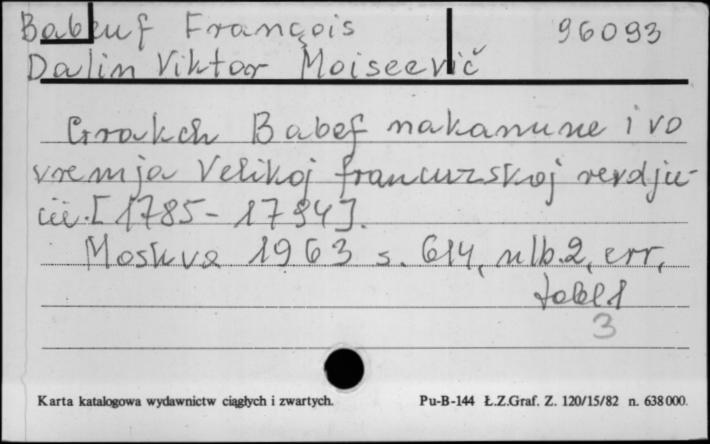 Babeuf François 96093
Dalin Viktor Moiseevič
Grakch Babef nakanune i vo
vremja Velikoj francuzskoj revolju-
cii. [1785-1794].
Moskva 1963 s. 614, nlb. 2, err,
tabl 1
3
Karta katalogowa wydawnictw ciągłych i zwartych. Pu-B-144 Ł.Z.Graf. Z. 120/15/82 n. 638000.